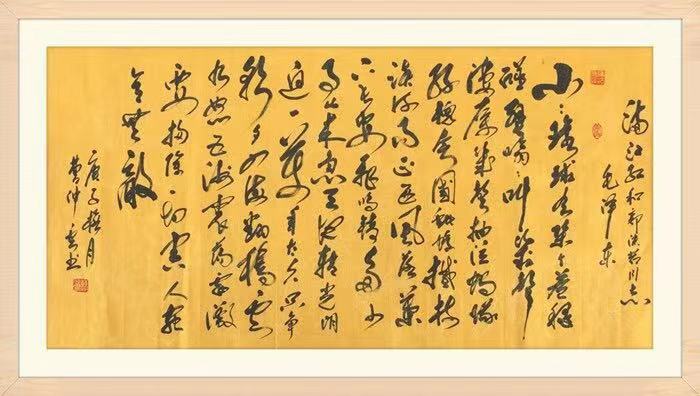 满江红和郭沫若同志
毛泽东
小小环球有几个苍蝇
碰壁嗡嗡叫几声
凄厉几声抽泣蚂蚁
缘槐夸大国蚍蜉撼树
谈何易正西风落叶
下长安飞鸣镝多少
事从来急天地转光阴
迫一万年太久只争
朝夕四海翻腾云
水怒五洲震荡风雷激
要扫除一切害人虫
全无敌
庚子梅月
仲书